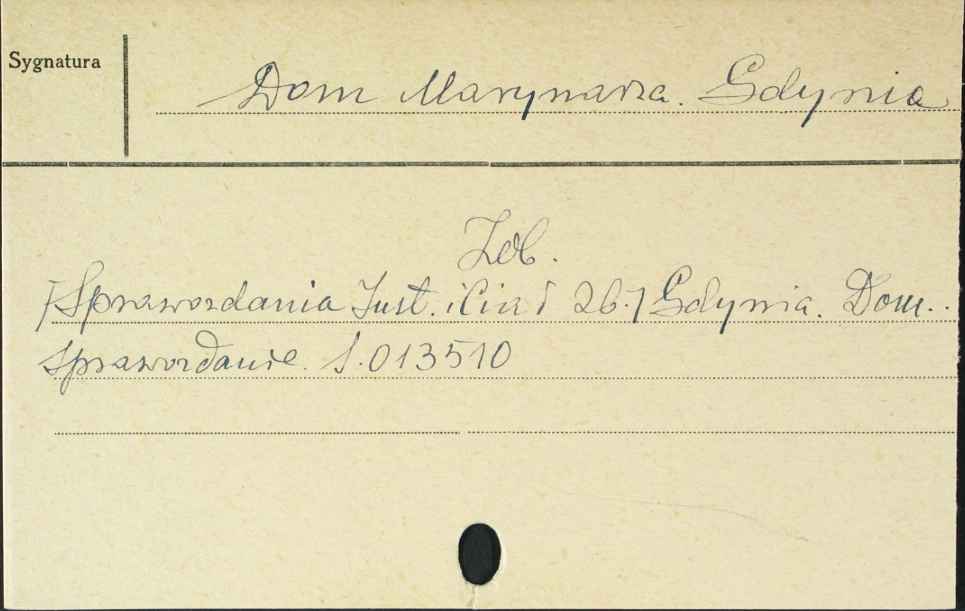 Sygnatura
Dom Marynarza. Gdynia
Zob.
/Sprawozdania Inst. i 26./ Gdynia. Dom..
Sprawozdanie. S.013510